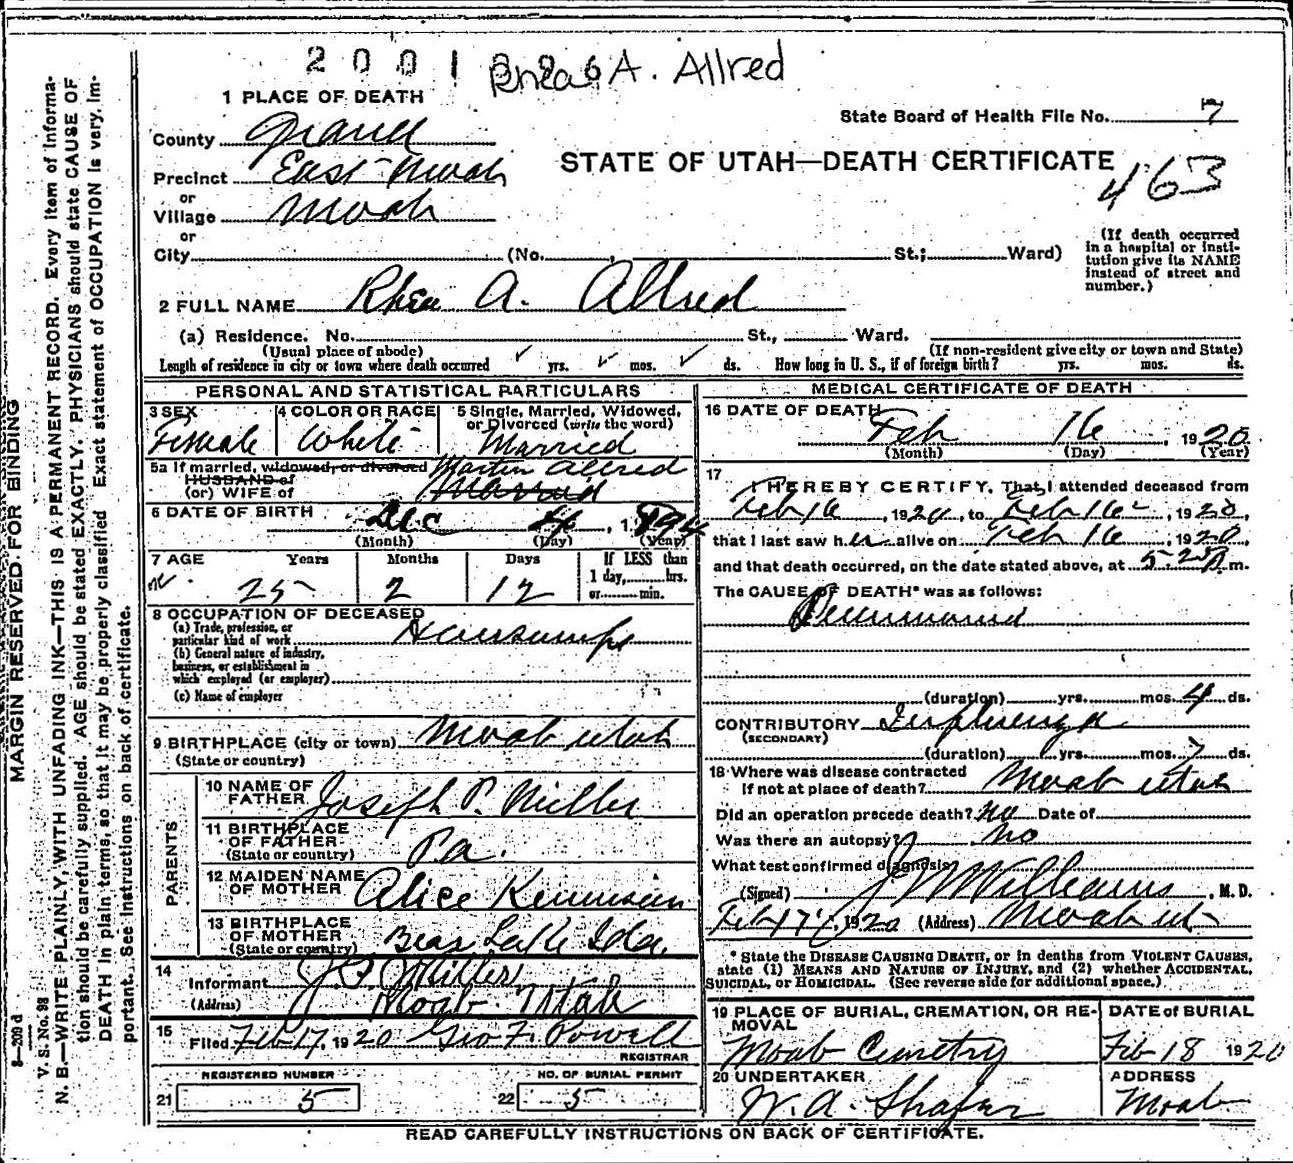 2001
Rhea A. Allred
1 PLACE OF DEATH
State Board of Health File No. 7
County Grand
STATE OF UTAH—DEATH CERTIFICATE
463
Precinct East Moab
or
Village Moab
or
City (No. , St.; Ward)
(If death occurred in a hospital or insti-
tution give its NAME
instead of street and
number.)
2 FULL NAME Rhea A. Allred
(a) Residence. No. St., Ward.
(Usual place of abode) (If non-resident give city or town and State)
Length of residence in city or town where death occurred yrs. mos. ds. How long in U. S., if of foreign birth? yrs. mos. ds.
PERSONAL AND STATISTICAL PARTICULARS
3 SEX 4 COLOR OR RACE 5 Single, Married, Widowed,
or Divorced (write the word)
Female White Married
5a If married, widowed, or divorced Martin Allred
HUSBAND of
(or) WIFE of Married
6 DATE OF BIRTH Dec 4, 1894
(Month) (Day) (Year)
7 AGE Years Months Days If LESS than
1 day, hrs.
or min.
25 2 12
8 OCCUPATION OF DECEASED
(a) Trade, profession, or
particular kind of work Housewife
(b) General nature of industry,
business, or establishment in
which employed (or employer)
(c) Name of employer
9 BIRTHPLACE (city or town) Moab Utah
(State or country)
PARENTS
10 NAME OF
FATHER Joseph P. Miller
11 BIRTHPLACE
OF FATHER Pa.
(State or country)
12 MAIDEN NAME
OF MOTHER Alice
13 BIRTHPLACE
OF MOTHER Bear Lake Ida.
(State or country)
14
Informant J. P. Miller
(Address) Moab Utah
15
Filed Feb 17, 1920 Geo F. Powell
REGISTRAR
REGISTERED NUMBER NO. OF BURIAL PERMIT
21 5 22 5
MEDICAL CERTIFICATE OF DEATH
16 DATE OF DEATH
Feb 16, 1920
(Month) (Day) (Year)
17
I HEREBY CERTIFY, That I attended deceased from
Feb 16, 1920, to Feb 16, 1920,
that I last saw her alive on Feb 16, 1920,
and that death occurred, on the date stated above, at m.
The CAUSE OF DEATH* was as follows:
Pneumonia
(duration) yrs. mos. 4 ds.
CONTRIBUTORY Influenza
(SECONDARY)
(duration) yrs. mos. 7 ds.
18 Where was disease contracted
if not at place of death? Moab Utah
Did an operation precede death? No Date of
Was there an autopsy? No
What test confirmed diagnosis
(Signed) J W Williams, M. D.
Feb 17, 1920 (Address) Moab Ut
* State the DISEASE CAUSING DEATH, or in deaths from VIOLENT CAUSES,
state (1) MEANS AND NATURE OF INJURY, and (2) whether ACCIDENTAL,
SUICIDAL, or HOMICIDAL. (See reverse side for additional space.)
19 PLACE OF BURIAL, CREMATION, OR RE-
MOVAL
Moab Cemetry
DATE of BURIAL
Feb 18 1920
20 UNDERTAKER
W. A. Shafer
ADDRESS
Moab
READ CAREFULLY INSTRUCTIONS ON BACK OF CERTIFICATE.
MARGIN RESERVED FOR BINDING
8—209 d V. S. No. 98
N. B.—WRITE PLAINLY, WITH UNFADING INK—THIS IS A PERMANENT RECORD. Every item of informa-
tion should be carefully supplied. AGE should be stated EXACTLY. PHYSICIANS should state CAUSE OF
DEATH in plain terms, so that it may be properly classified. Exact statement of OCCUPATION is very im-
portant. See instructions on back of certificate.